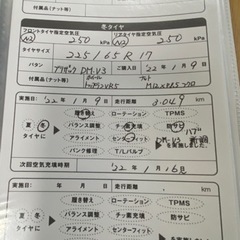 付属品(ナット等)
冬タイヤ
フロントタイヤ指定空気圧 リアタイヤ指定空気圧
N2 250 kPa N2 250 kPa
タイヤサイズ 225/65R17
パタン ブリザック DM-V3 ご購入日 '22年1月9日
付属品(ナット等) ホイール VR5 ナット M12×P1.5
実施日: '22年1月9日 走行距離 8,049 km
夏・冬 タイヤに
履き替え ローテーション TPMS
バランス調整 チッ素充填 防サビ
アライメント センターフィット
パンク修理 T/Lバルブ
次回空気充填時期 '22年1月16日
実施日: 年 月 日 走行距離 km
夏・冬 タイヤに
履き替え ローテーション TPMS
バランス調整 チッ素充填 防サビ
アライメント センターフィット